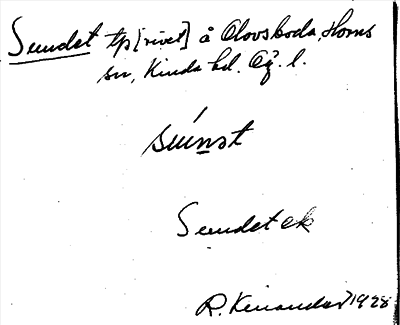 Sundet tp [rivet] å Olovsboda, Horns
sn, Kinda hd. Ög. l.
súnst
Sundet ek
R. Kenander 1928